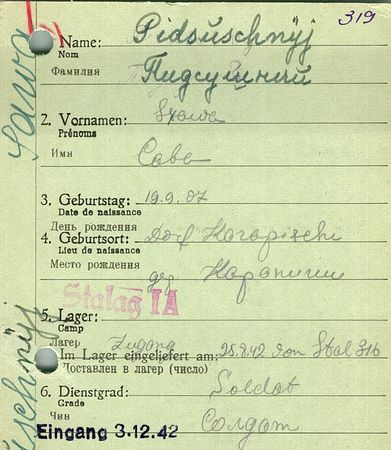 319
Name: Pidsuschnÿj
Nom
Фамилия Пидсушний
Sawa
2. Vornamen:
Prénoms
Имя Сава
3. Geburtstag: 19.9.07
Date de naissance
День рождения
4. Geburtsort: Dorf Harapischi
Lieu de naissance
Место рождения
Stalag IA
5. Lager:
Camp
Лагерь Zugang
Im Lager eingeliefert am: 25.8.42 von Stal 316
Доставлен в лагерь (число)
6. Dienstgrad: Soldat
Grade
Чин Солдат
Eingang 3.12.42